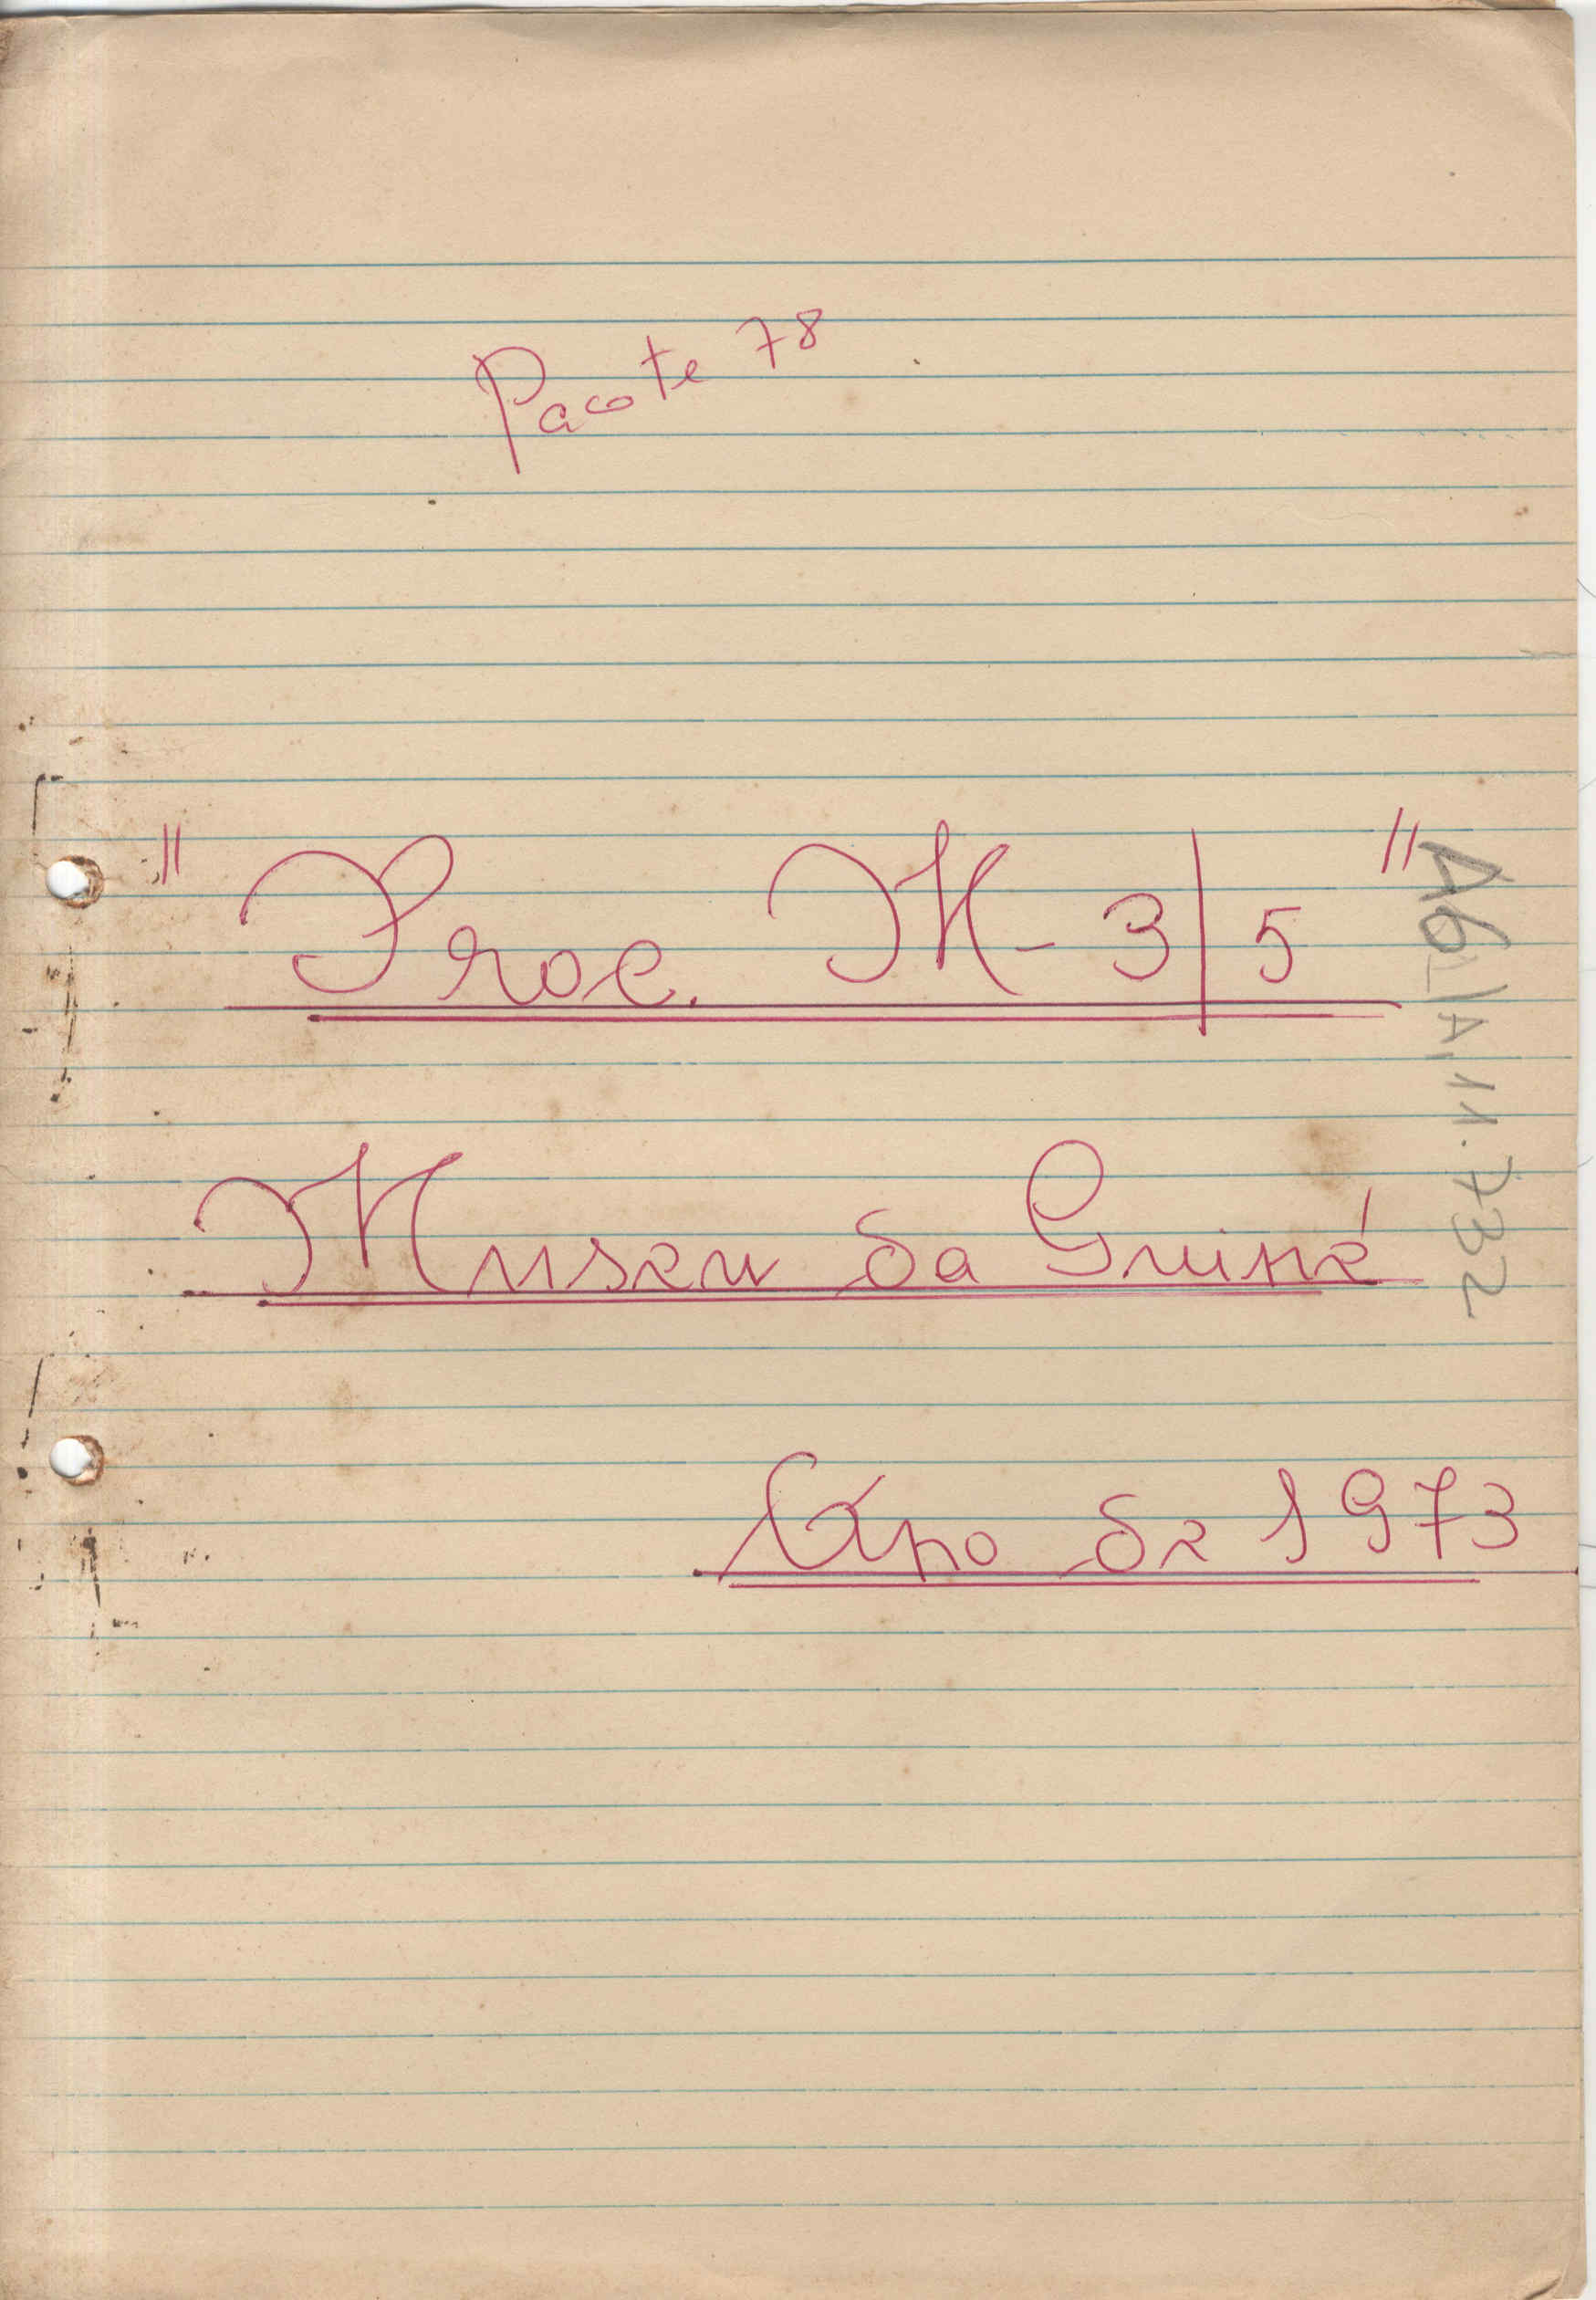 Pacote 78
"Proc. M-3/5"
Museu da Guiné
Ano de 1973
A6/A.11.732